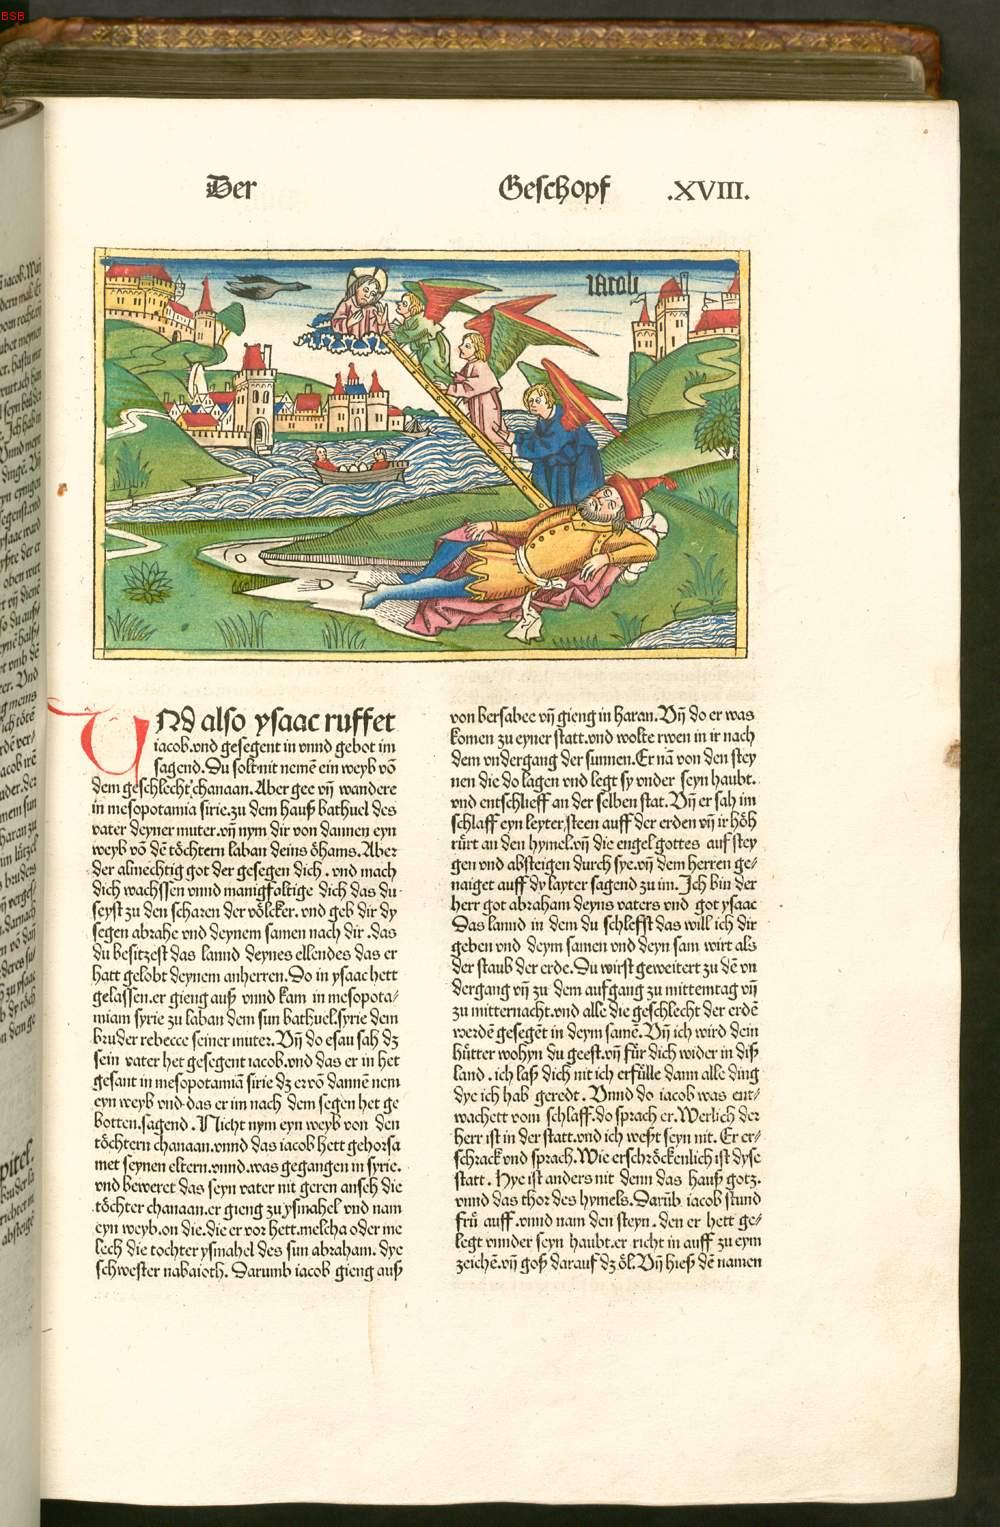 BSB
Der Geschopf .XVIII.
Jacob
VNd also ysaac ruffet
iacob.vnd gesegent in vnnd gebot im
sagend.Du solt nit nemē ein weyb vō
dem geschlecht chanaan.Aber gee vñ wandere
in mesopotamia sirie.zu dem hauß bathuel des
vater deyner muter.vñ nym dir von dannen eyn
weyb vō dē töchtern laban deins öhams.Aber
der almechtig got der gesegen dich . vnd mach
dich wachssen vnnd manigfaltige dich das du
seyst zu den scharen der völcker. vnd geb dir dy
segen abrahe vnd deynem samen nach dir .das
du besitzest das lannd deynes ellendes das er
hatt gelobt deynem anherren.Do in ysaac hett
gelassen.er gieng auß vnnd kam in mesopota/
miam syrie zu laban dem sun bathuel.syrie dem
bruder rebecce seiner muter. Vñ do esau sah dz
sein vater het gesegent iacob.vnd das er in het
gesant in mesopotamiā sirie dz er vō dannē nem
eyn weyb vnd das er im nach dem segen het ge
botten.sagend . Nicht nym eyn weyb von den
töchtern chanaan.vnnd das iacob hett gehorsa
met seynen eltern.vnnd.was gegangen in syrie.
vnd beweret das seyn vater nit geren anseh die
töchter chanaan.er gieng zu ysmahel vnd nam
eyn weyb.on die.die er vor hett.melcha oder me
lech die tochter ysmahel des sun abraham. dye
schwester nabaioth. Darumb iacob gieng auß
von bersabee vñ gieng in haran. Vñ do er was
komen zu eyner statt.vnd wolte rwen in ir nach
dem vndergang der sunnen.Er nā von den stey
nen die do lagen vnd legt sy vnder seyn haubt.
vnd entschlieff an der selben stat. Vñ er sah im
schlaff eyn leyter steen auff der erden vñ ir höh
rürt an den hymel.vñ die engel gottes auf stey
gen vnd absteigen durch sye.vñ dem herren ge/
naiget auff dy layter sagend zu im. Jch bin der
herr got abraham deyns vaters vnd got ysaac
Das lannd in dem du schleffst das will ich dir
geben vnd deym samen vnd deyn sam wirt als
der staub der erde.Du wirst geweitert zu dē vn
dergang vñ zu dem aufgang zu mittemtag vñ
zu mitternacht.vnd alle die geschlecht der erdē
werdē gesegēt in deym samē. Vñ ich wird dein
hütter wohyn du geest.vñ für dich wider in diß
land . ich laß dich nit ich erfülle dann alle ding
dye ich hab geredt . Vnnd do iacob was ent/
wachett vom schlaff.do sprach er. Werlich der
herr ist in der statt.vnd ich weßt seyn nit. Er er/
schrack vnd sprach.Wie erschröckenlich ist dyse
statt . Hye ist anders nit denn das hauß gotz.
vnnd das thor des hymels. Darūb iacob stund
frü auff.vnnd nam den steyn . den er hett ge/
legt vnnder seyn haubt.er richt in auff zu eym
zeichē.vñ goß darauf dz öl. Vñ hieß dē namen